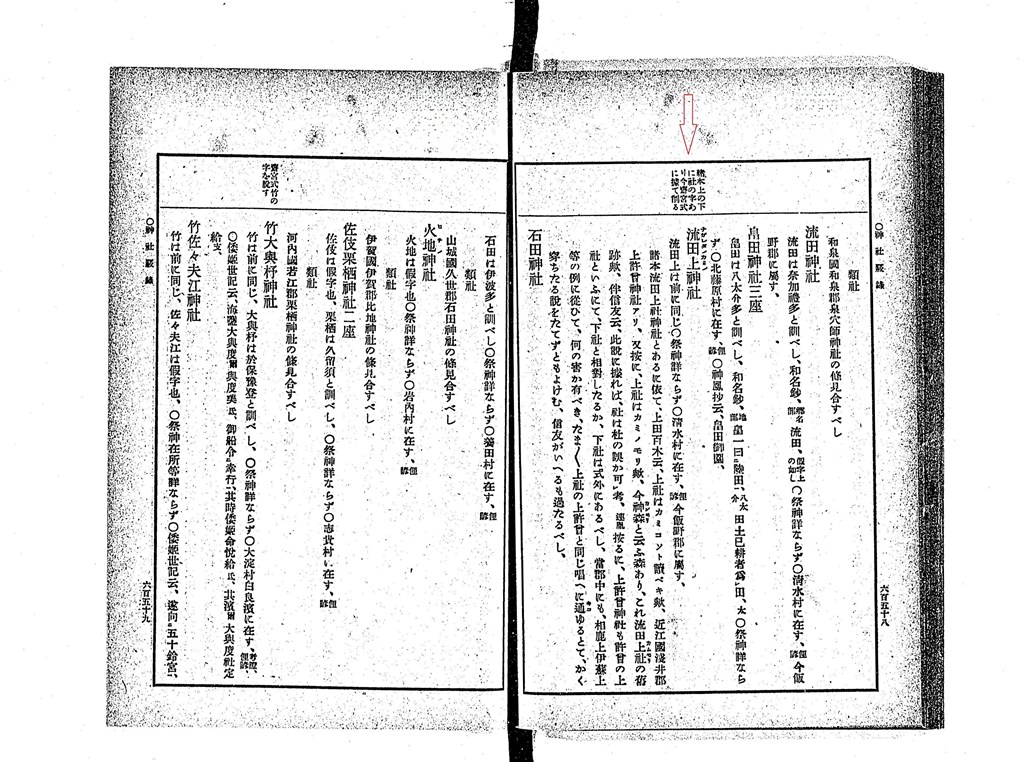 ○神社覈錄
六百五十八
諸本上の下
に社の字あ
り今齋宮式
に據て削る
類社
和泉國和泉郡泉穴師神社の條見合すべし
流田神社
流田は奈加禮多と訓べし、和名鈔、郷名部 流田、假字上の如し ○祭神詳ならず○清水村に在す、俚諺 今飯
野郡に屬す、
畠田神社三座
畠田は八太介多と訓べし、和名鈔、地部 畠一曰陸田、八太 田土已耕者爲田、太○祭神詳なら
ず○北藤原村に在す、俚諺○神鳳抄云、畠田御園、
流田上神社
流田上は前に同じ○祭神詳ならず○清水村に在す、俚諺 今飯野郡に屬す、
諸本流田上社神社とあるに依て、上田百木云、上社はカミコソト讀ベキ歟、近江國淺井郡
上許曾神社アリ、又按に、上社はカミノモリ歟、今神森と云ふ森あり、これ流田上社の舊
跡歟、伴信友云、此說に據れば、社は杜の誤か可考、連胤按るに、上許曾神社も許曾の上
社といふにて、下社と相對したるか、下社は式外にあるべし、當郡中にも、相鹿上伊蘇上
等の例に從ひて、何の害か有べき、たま〱上社の上許曾と同じ唱へに通ゆるとて、かく
穿ちたる說をたてずともよけむ、信友がいへるも過たるべし、
石田神社
石田は伊波多と訓べし○祭神詳ならず○養田村に在す、俚諺
類社
山城國久世郡石田神社の條見合すべし
火地神社
火地は假字也○祭神詳ならず○岩內村に在す、俚諺
類社
伊賀國伊賀郡比地神社の條見合すべし
佐伎栗栖神社二座
佐伎は假字也、栗栖は久留須と訓べし、○祭神詳ならず○志貴村に在す、俚諺
類社
河內國若江郡栗栖神社の條見合すべし
齋宮式竹の
字を脫す
竹大與杼神社
竹は前に同じ、大與杼は於保豫登と訓べし、○祭神詳ならず○大淀村白良濱に在す、
○倭姬世記云、海鹽大與度爾與度美氐、御船令幸行、其時倭姬命悅給氐、其濱爾大與度社定
給支、
竹佐々夫江神社
竹は前に同じ、佐々夫江は假字也、○祭神在所等詳ならず○倭姬世記云、遂向五十鈴宮、
○神社覈錄
六百五十九